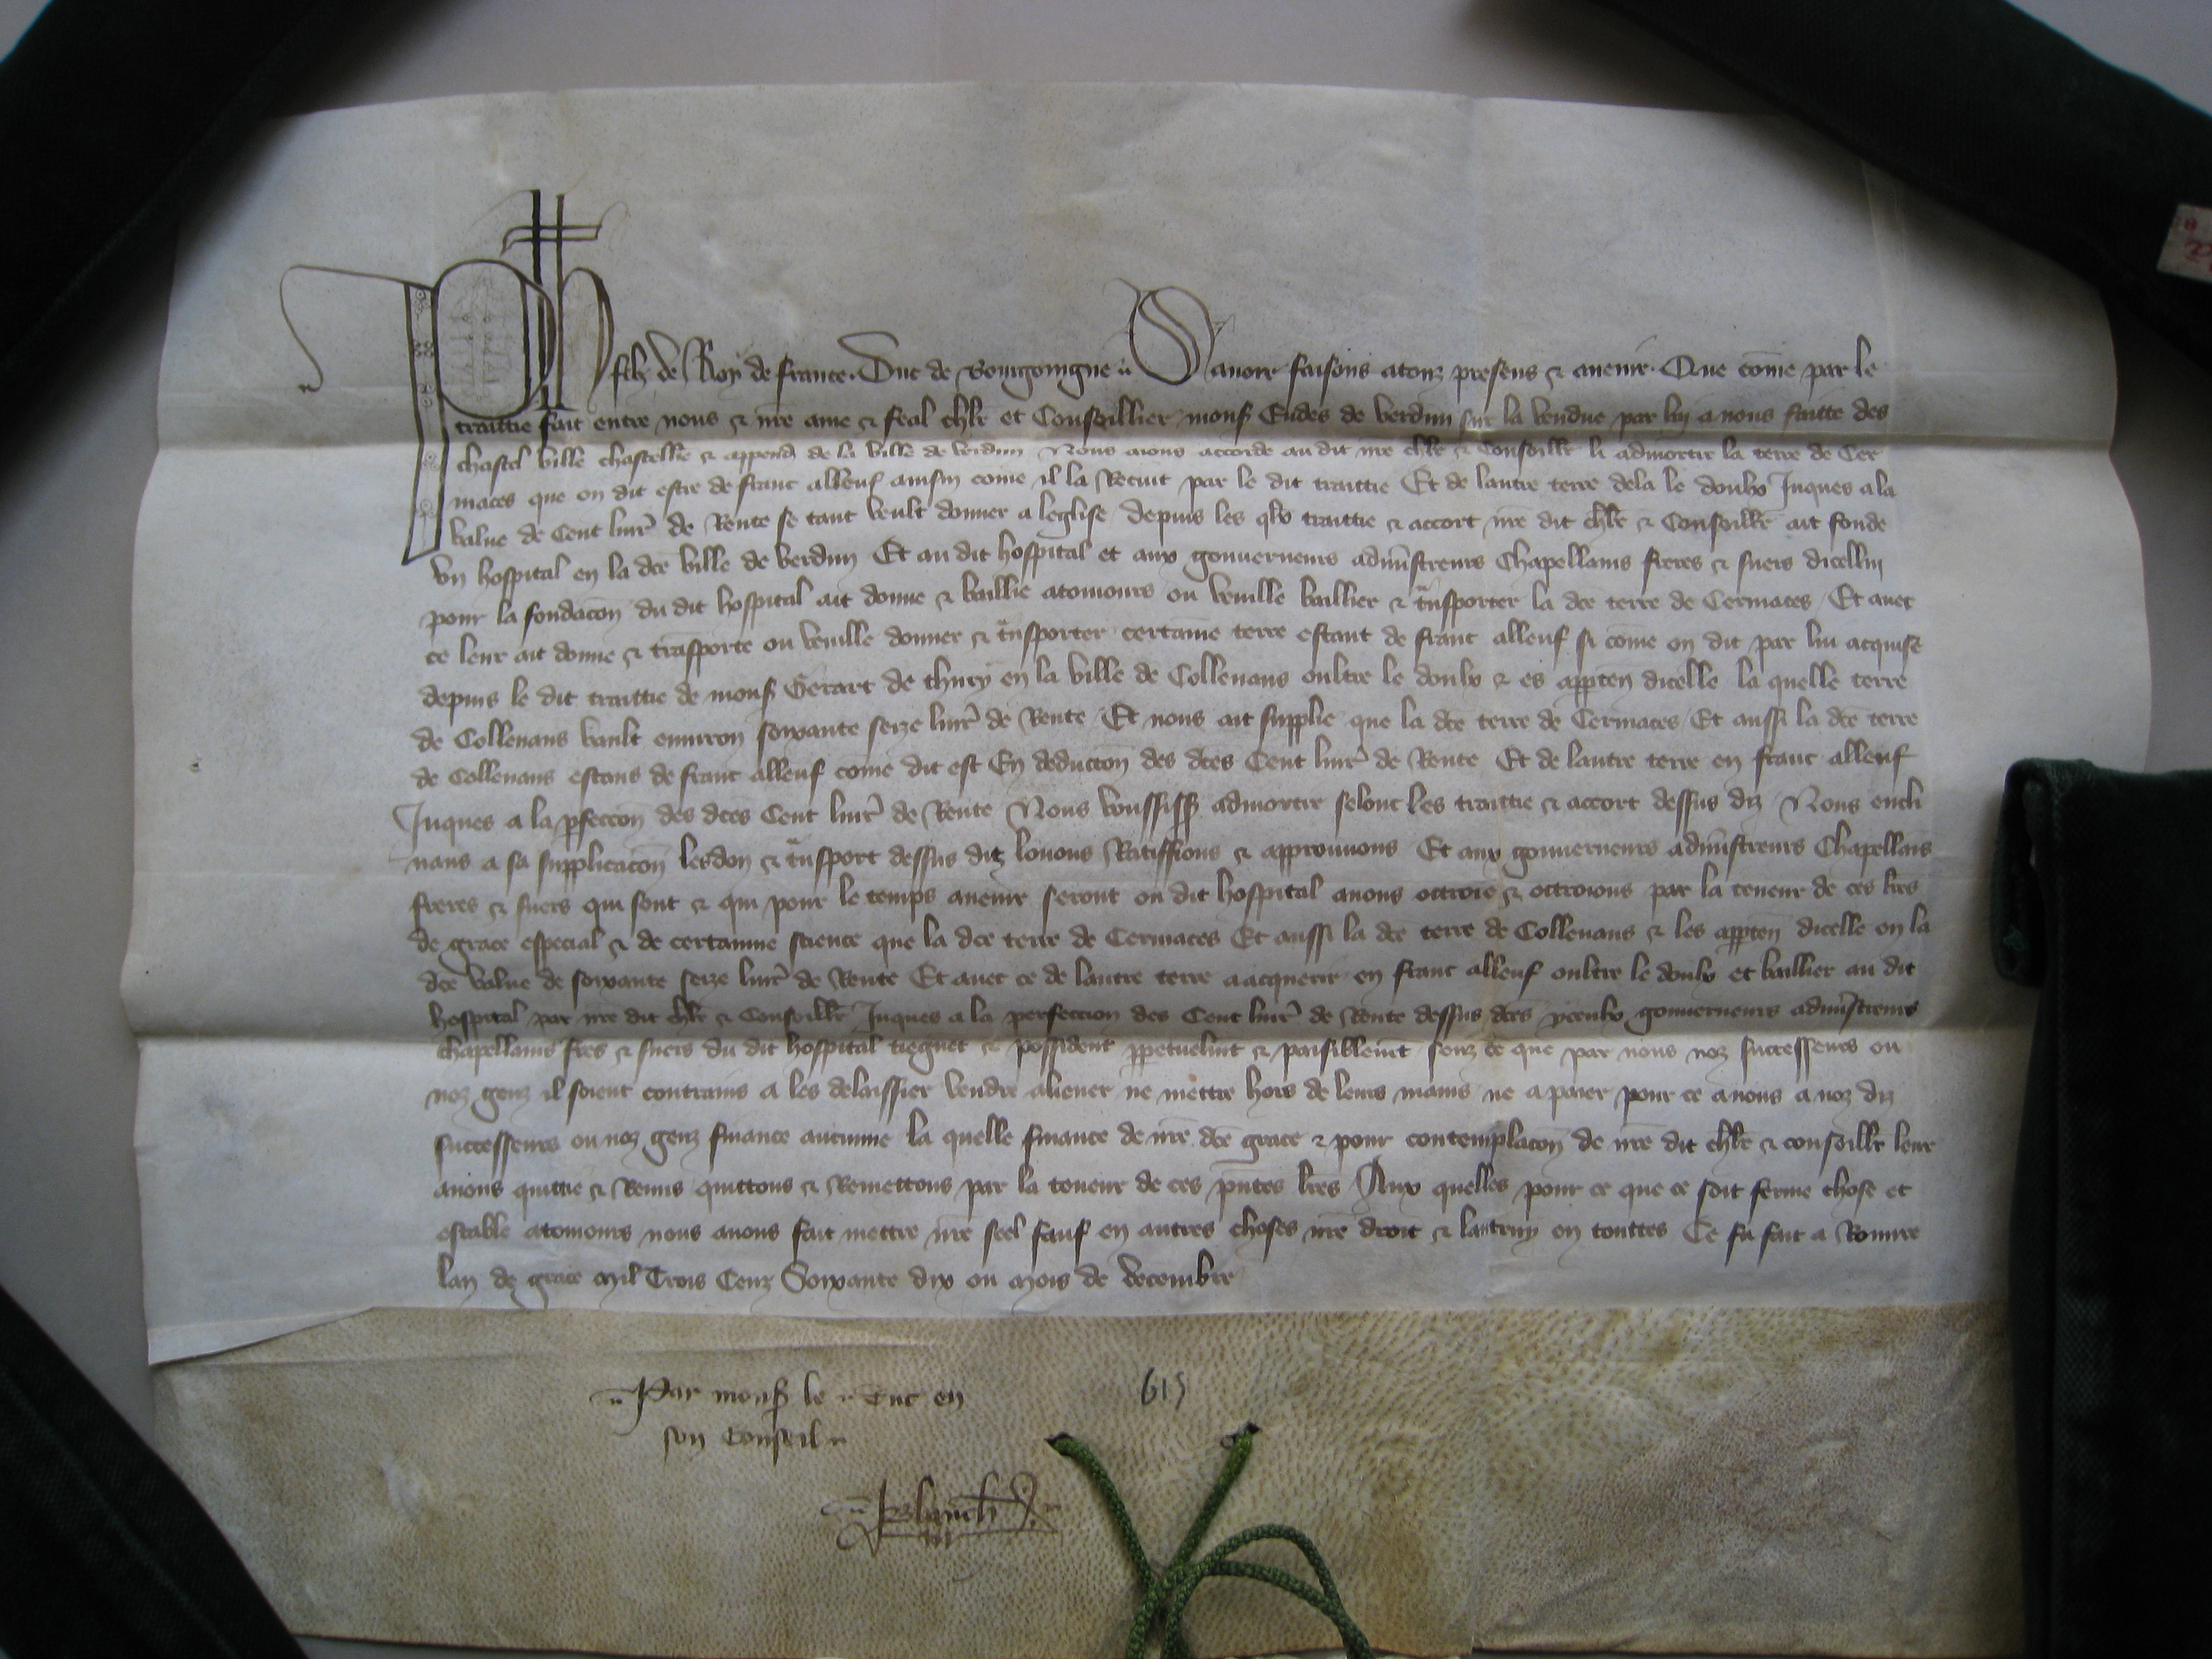 Ph filz de Roy de france. Duc de Bourgoingne Sauoir faisons atouz presens & auenir. Que come par le
traittie fait entre nous & nre ame & feal chlr et Conseillier mons Eudes de verdun sur la vendue par lui a nous faitte des
chastel ville chastellie & append de la ville de verdun Nous aions accorde au dit nre chlr & Conseillr li admortir la terre de Cer
maces que on dit estre de franc alleuf ainsin come il la Recuit par le dit traittie Et de lautre terre dela le doubz Juques a la
value de Cent livr de Rente se tant veult donner a leglise depuis les qlx traittie & accort nre dit chlr & Conseillr ait fonde
vn hospital en la dce ville de verdun Et au dit hospital et aux gouuerneurs adminstreurs Chapellains freres & suers dicellui
pour la fondacon du dit hospital ait donne & baillie atoiours ou veuille baillier & tnsporter la dce terre de Cermaces Et auec
ce leur ait donne & trasporte ou veuille donner & tnsporter certaine terre estant de franc alleuf si come on dit par lui acquise
depuis le dit traittie de mons Gerart de thury en la ville de Collenans oultre le doubx & es apptен dicelle la quelle terre
de Collenans vault enuiron soixante seize livr de Rente Et nous ait supplie que la dce terre de Cermaces Et aussi la dce terre
de Collenans estans de franc alleuf come dit est En deduccon des dces Cent livr de Rente Et de lautre terre en franc alleuf
Juques a la pfeccon des dces Cent livr de Rente Nous voussiss admortir selonc les traittie & accort dessus diz Nous encli
nans a sa supplicacon les don & tnsport dessus diz louons Ratiffions & approuuons Et aux gouuerneurs adminstreurs Chapellais
freres & suers qui sont & qui pour le temps auenir seront ou dit hospital auons ottroie & ottroions par la teneur de ces lres
de grace especial & de certainne science que la dce terre de Cermaces Et aussi la dce terre de Collenans & les appten dicelle en la
dce value de soixante seize livr de Rente Et auec ce de lautre terre a acquerir en franc alleuf oultre le doubx et baillier au dit
hospital par nre dit chlr & Conseillr Juques a la perfeccion des Cent livr de Rente dessus dces yceulx gouuerneurs adminstreurs
chapellains fres & suers du dit hospital tiegnet & possident ppetuelmt & paisiblemt senz ce que par nous noz successeurs ou
noz genz il soient contrains a les delaissier vendre aliener ne mettre hors de leurs mains ne a paier pour ce a nous a noz diz
successeurs ou noz genz finance aucunne la quelle finance de nre dce grace & pour contemplacon de nre dit chlr & conseillr leur
auons quittie & Remis quittons & Remettons par la teneur de ces pntes lres Aux quelles pour ce que ce soit ferme chose et
estable atoiours nous auons fait mettre nre seel sauf en autres choses nre droit & lautruy en touttes Ce fu fait a Rouure
lan de grace mil Trois Cenz Soixante dix ou mois de decembre
Par mons le Duc en
615
son Conseil
Blanch